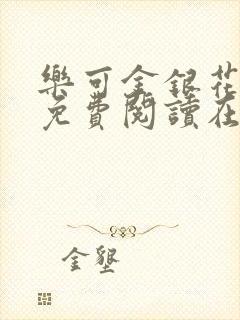 樂可金銀花
免費閱讀在
金墾